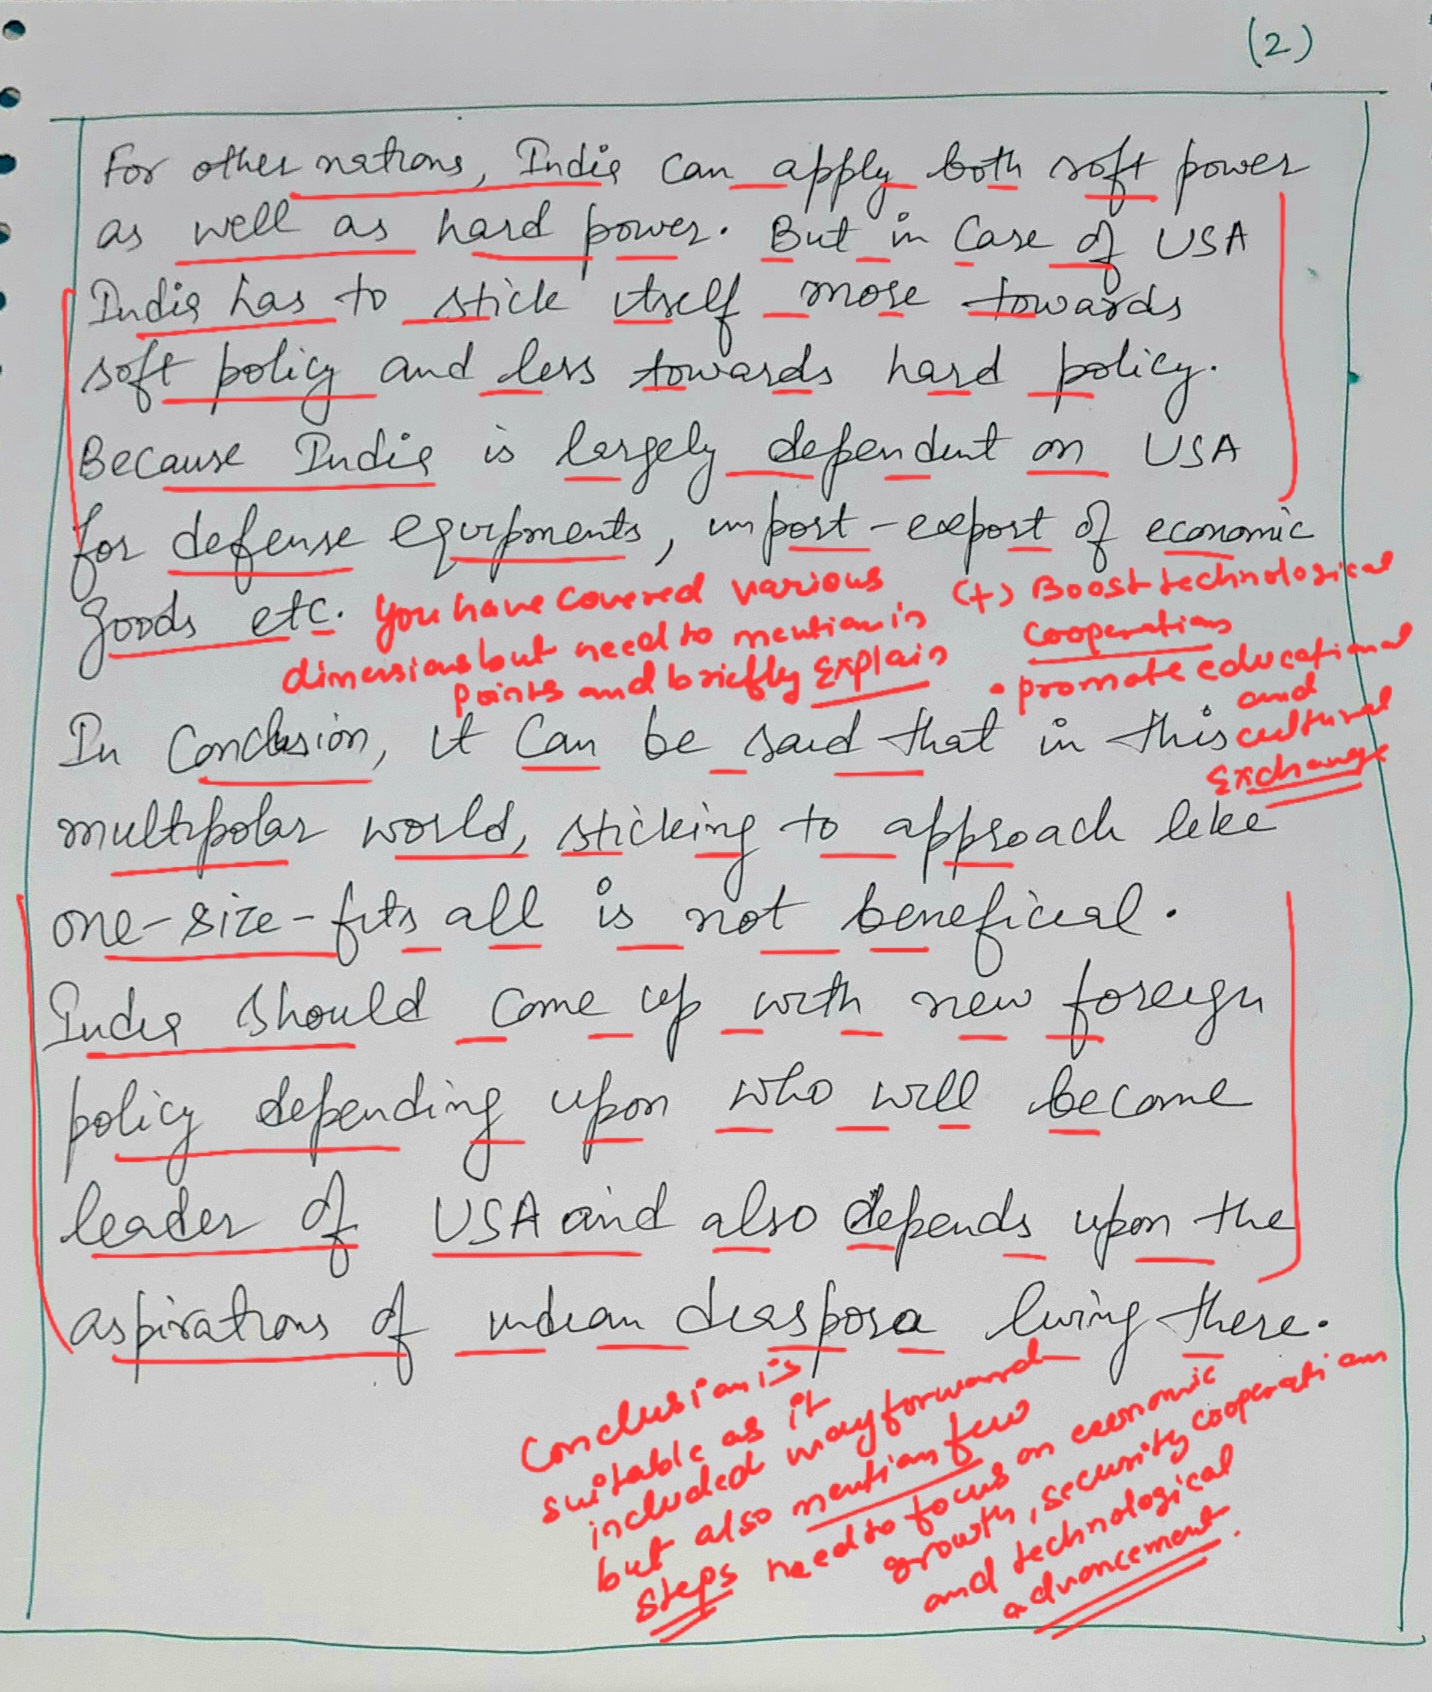 (2)
For other nations, India can apply both soft power
as well as hard power. But in case of USA
India has to stick itself more towards
soft policy and less towards hard policy.
Because India is largely dependent on USA
for defense equipments, import-export of economic
goods etc.
You have covered various
dimensions but need to mention in
points and briefly explain
(+) Boost technological
cooperation
• promote educational
and
cultural
exchange
In Conclusion, it can be said that in this
multipolar world, sticking to approach like
one-size-fits all is not beneficial.
India should come up with new foreign
policy depending upon who will become
leader of USA and also depends upon the
aspirations of indian diaspora living there.
Conclusion is
suitable as it
included wayforward
but also mention few
steps need to focus on economic
growth, security cooperation
and technological
advancement.